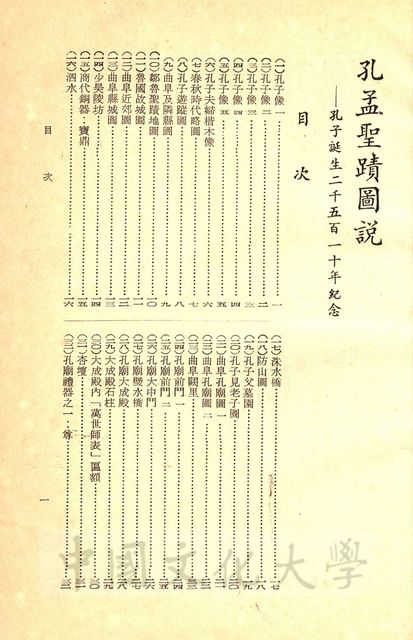 孔孟聖蹟圖說
——孔子誕生二千五百一十年紀念
目次
(一)孔子像一……一
(二)孔子像二……二
(三)孔子像三……三
(四)孔子像四……四
(五)孔子像五……五
(六)孔子夫婦楷木像……六
(七)春秋時代略圖……七
(八)孔子遊蹤圖……八
(九)曲阜及隣縣圖……九
(一〇)鄒魯聖蹟地圖……一〇
(一一)魯國故城圖……一一
(一二)曲阜近郊圖……一二
(一三)曲阜縣城圖……一三
(一四)少昊陵坊……一四
(一五)商代銅器:寶鼎……一五
(一六)泗水……一六
(一七)洙水橋……一七
(一八)防山圖……一八
(一九)孔子父墓園……一九
(二〇)孔子見老子圖……二〇
(二一)曲阜孔廟圖一……二一
(二二)曲阜孔廟圖二……二二
(二三)曲阜闕里……二三
(二四)孔廟前門一……二四
(二五)孔廟前門二……二五
(二六)孔廟大中門……二六
(二七)孔廟璧水橋……二七
(二八)孔廟大成殿……二八
(二九)大成殿石柱……二九
(三〇)大成殿內「萬世師表」匾額……三〇
(三一)杏壇……三一
(三二)孔廟禮器之一:尊……三二
目次
一
中國文化大學